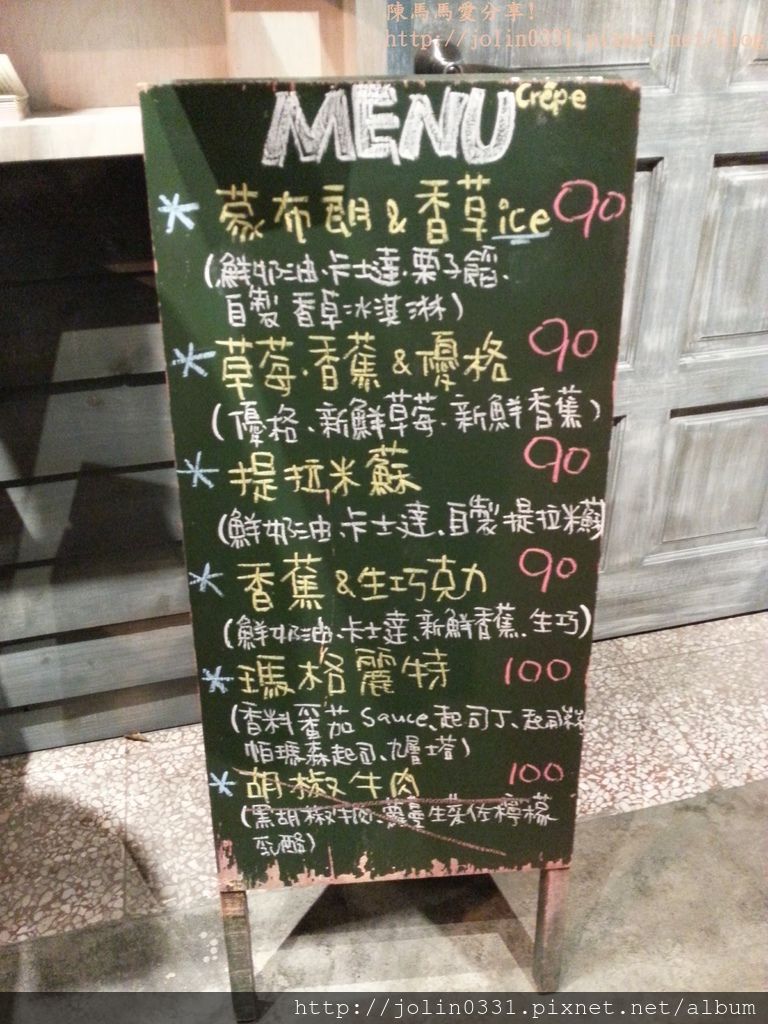 陳馬馬愛分享!
http://jolin0331.pixnet.net/blog
MENU Crêpe
* 蒙布朗&香草ice 90
(鮮奶油、卡士達、栗子餡、
自製香草冰淇淋)
* 草莓、香蕉&優格 90
(優格、新鮮草莓、新鮮香蕉)
* 提拉米蘇 90
(鮮奶油、卡士達、自製提拉米蘇)
* 香蕉&生巧克力 90
(鮮奶油、卡士達、新鮮香蕉、生巧)
* 瑪格麗特 100
(香料蕃茄Sauce、起司丁、起司絲
帕瑪森起司、九層塔)
* 胡椒牛肉 100
(黑胡椒牛肉、蘿蔓生菜佐檸檬
乳酪)
http://jolin0331.pixnet.net/album